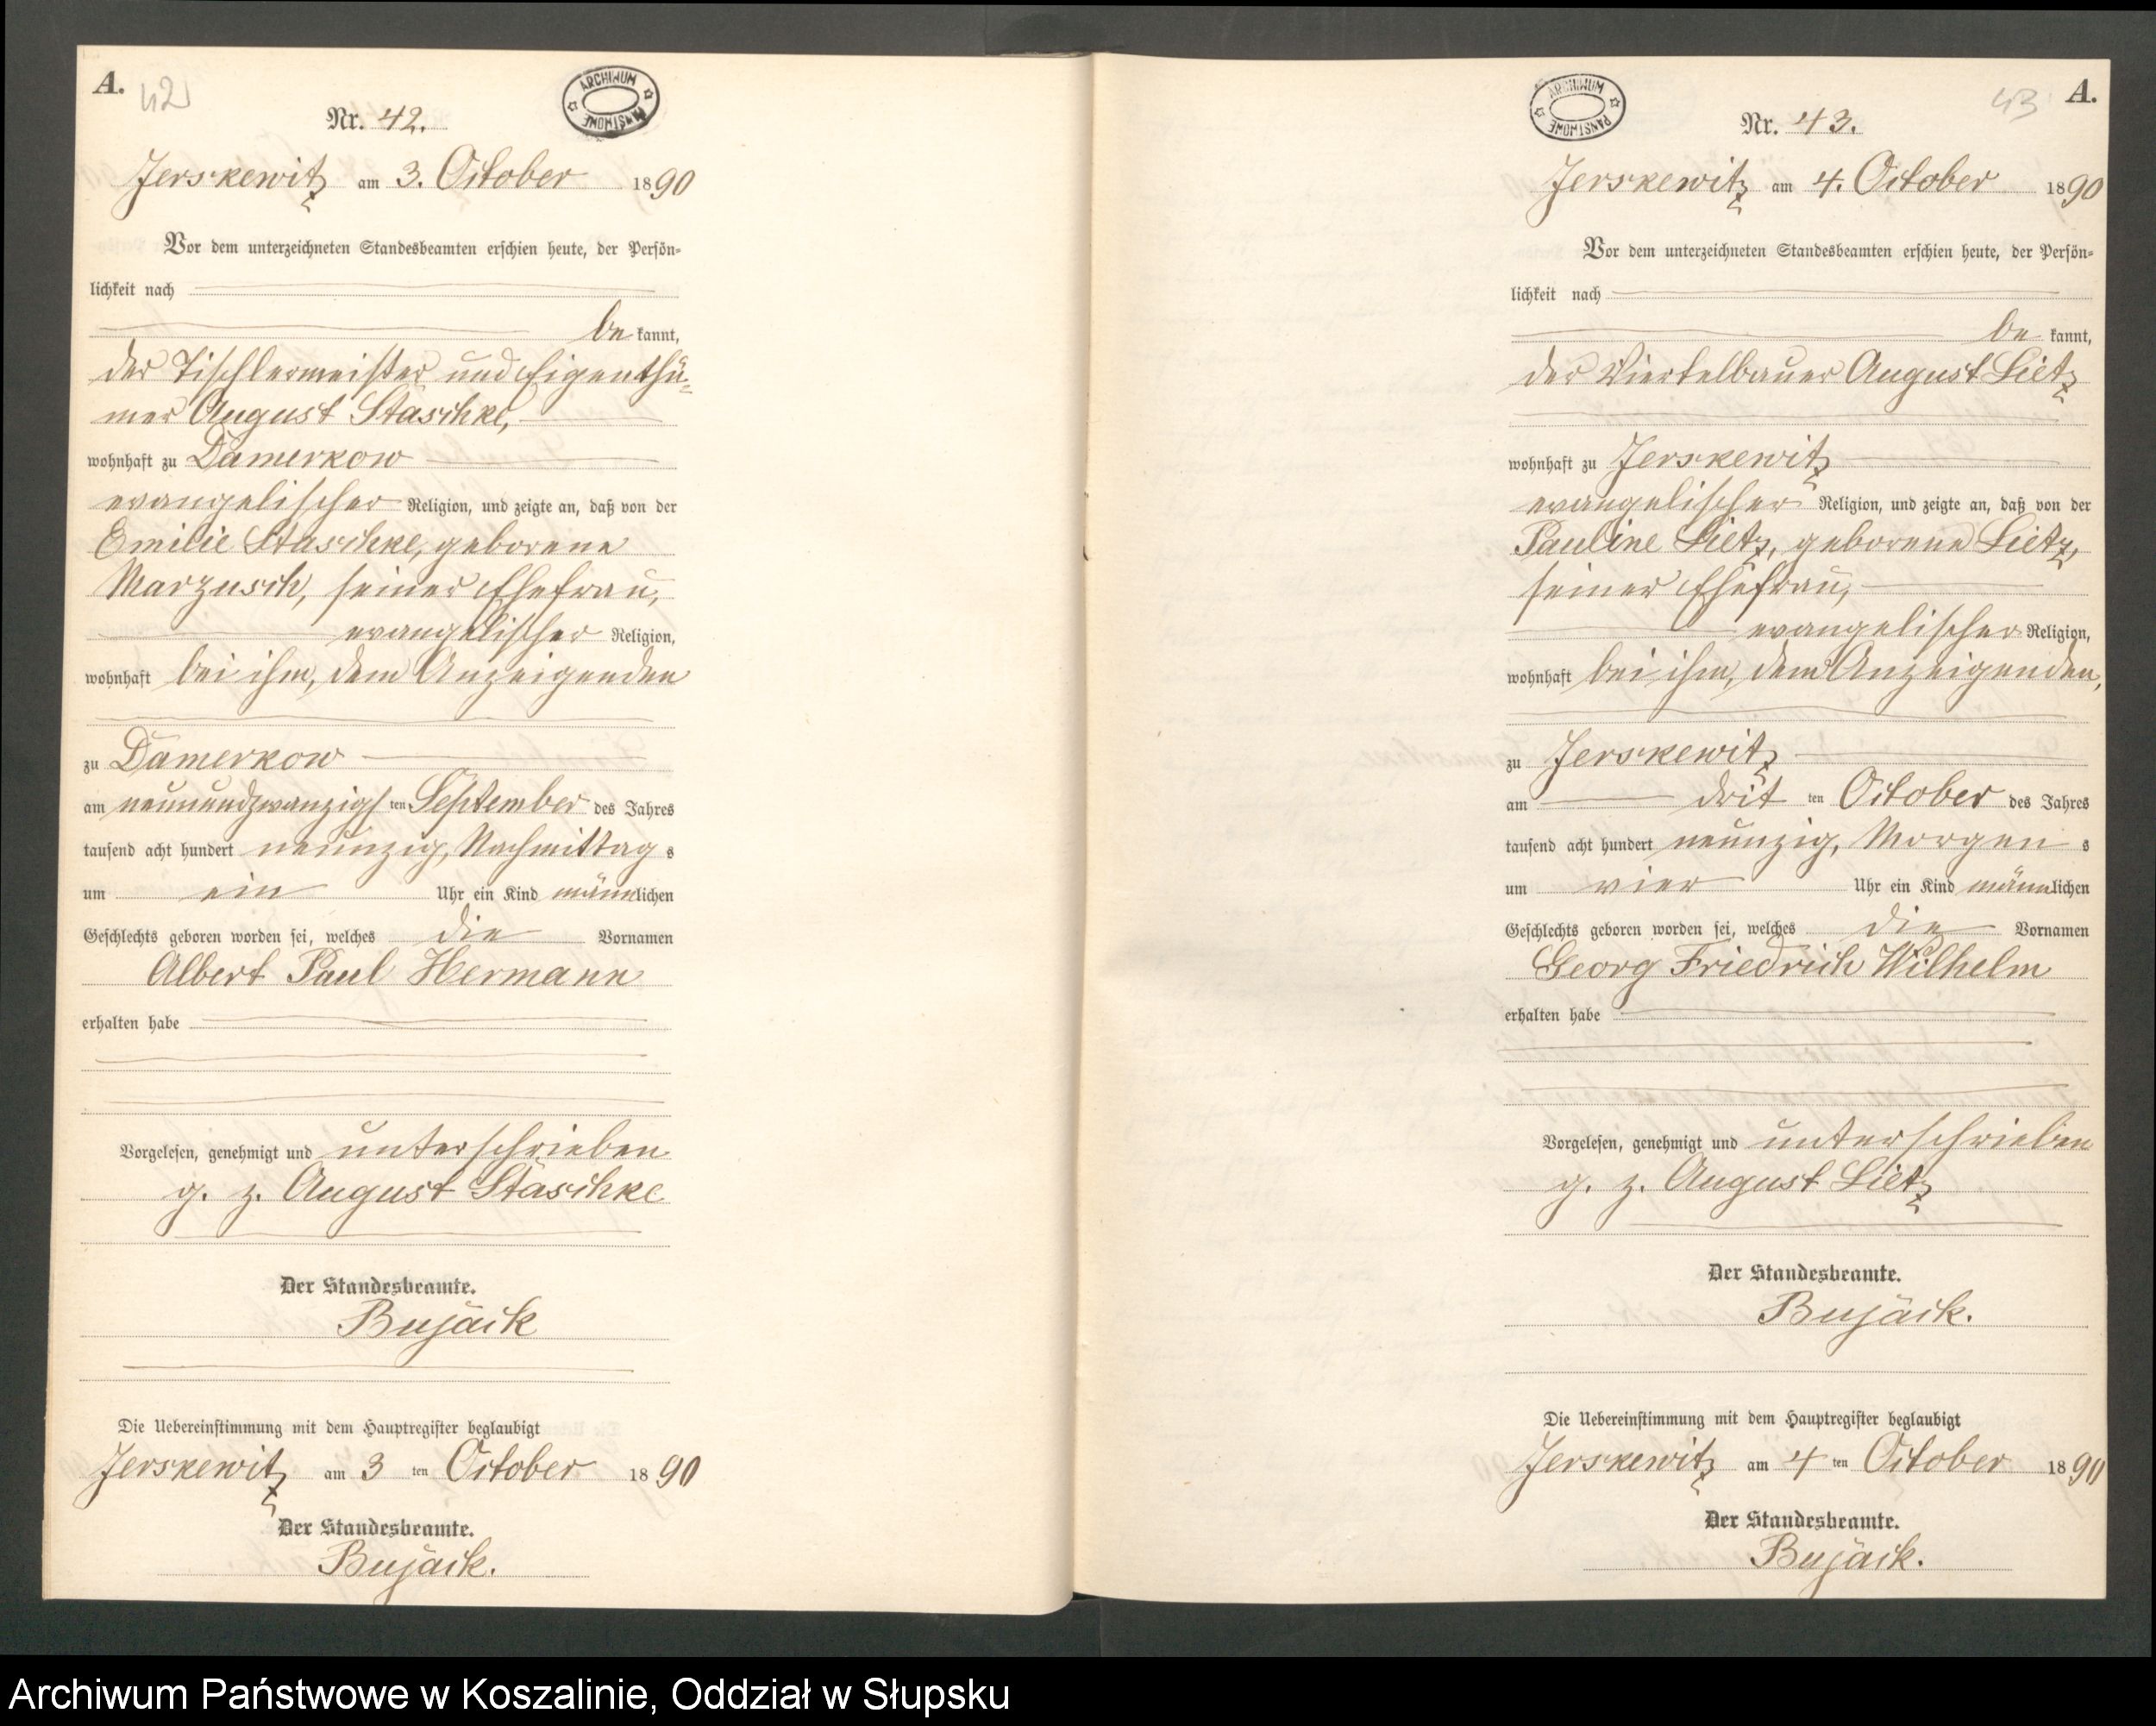 A.
42
Nr. 42.
ARCHIWUM PAŃSTWOWE
Jerskewitz am 3. October 1890
Vor dem unterzeichneten Standesbeamten erschien heute, der Persön-
lichkeit nach
be kannt,
der Tischlermeister und Eigenthü-
mer August Staschke,
wohnhaft zu Damerkow
evangelischer Religion, und zeigte an, daß von der
Emilie Staschke, geborene
Marzusch, seiner Ehefrau,
evangelischer Religion,
wohnhaft bei ihm, dem Anzeigenden
zu Damerkow
am neunundzwanzigs ten September des Jahres
tausend acht hundert neunzig, Nachmittag s
um ein Uhr ein Kind männlichen
Geschlechts geboren worden sei, welches die Vornamen
Albert Paul Hermann
erhalten habe
Vorgelesen, genehmigt und unterschrieben
g. z. August Staschke
Der Standesbeamte.
Bujack
Die Uebereinstimmung mit dem Hauptregister beglaubigt
Jerskewitz am 3 ten October 1890
Der Standesbeamte.
Bujack.
A.
43
ARCHIWUM PAŃSTWOWE
Nr. 43.
Jerskewitz am 4. October 1890
Vor dem unterzeichneten Standesbeamten erschien heute, der Persön-
lichkeit nach
be kannt,
der Viertelbauer August Lietz
wohnhaft zu Jerskewitz
evangelischer Religion, und zeigte an, daß von der
Pauline Lietz, geborene Lietz,
seiner Ehefrau,
evangelischer Religion,
wohnhaft bei ihm, dem Anzeigenden,
zu Jerskewitz
am drit ten October des Jahres
tausend acht hundert neunzig, Morgen s
um vier Uhr ein Kind männlichen
Geschlechts geboren worden sei, welches die Vornamen
Georg Friedrich Wilhelm
erhalten habe
Vorgelesen, genehmigt und unterschrieben
g. z. August Lietz
Der Standesbeamte.
Bujack.
Die Uebereinstimmung mit dem Hauptregister beglaubigt
Jerskewitz am 4 ten October 1890
Der Standesbeamte.
Bujack.
Archiwum Państwowe w Koszalinie, Oddział w Słupsku